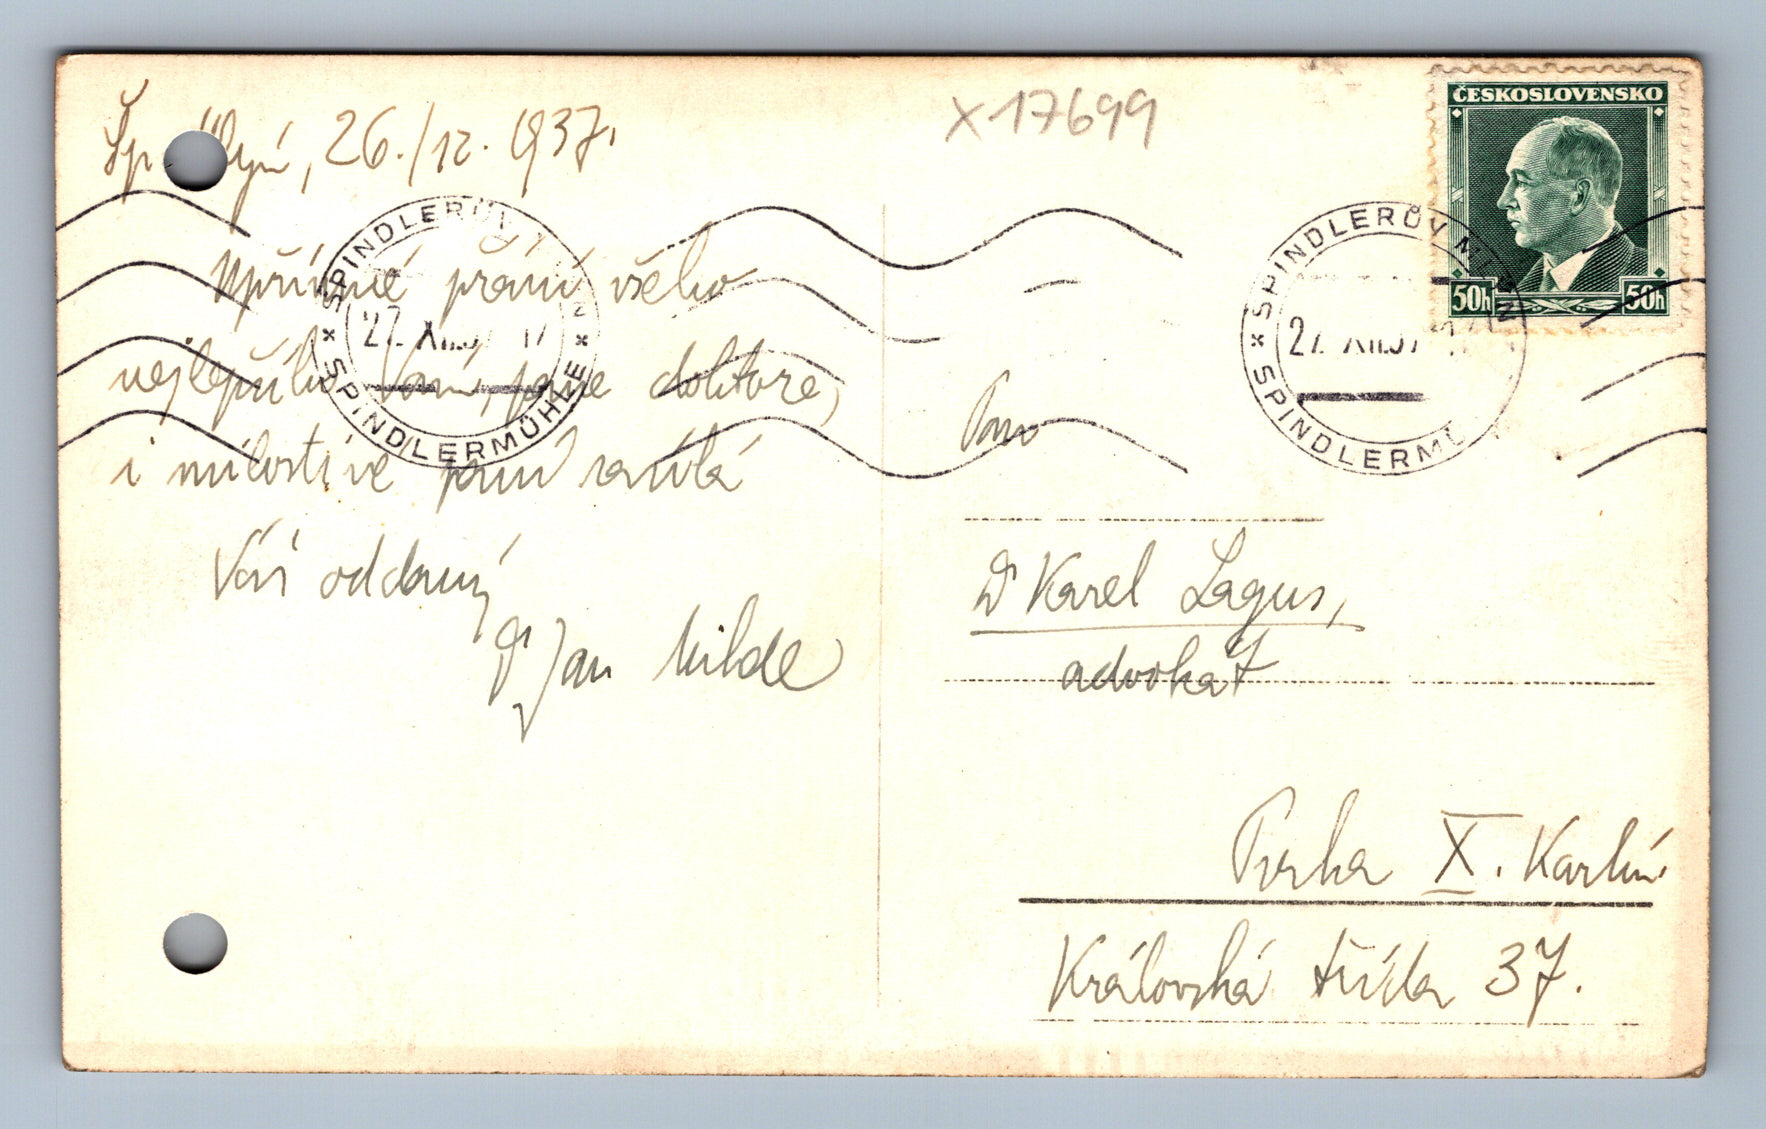 Šp. Mlýn, 26./12. 1937.
X17699
ČESKOSLOVENSKO
50h 50h
SPINDLERŮV MLÝN
27 XII.37 17
SPINDLERMÜHLE
SPINDLERŮV MLÝN
27 XII.37
SPINDLERMÜ
Upřímné přání všeho
nejlepšího Vám, pane doktore,
i milostivé paní zasílá
Váš oddaný
Dr Jan Milde
Pan
Dr Karel Lagus,
advokát
Praha X. Karlín.
Královská třída 37.